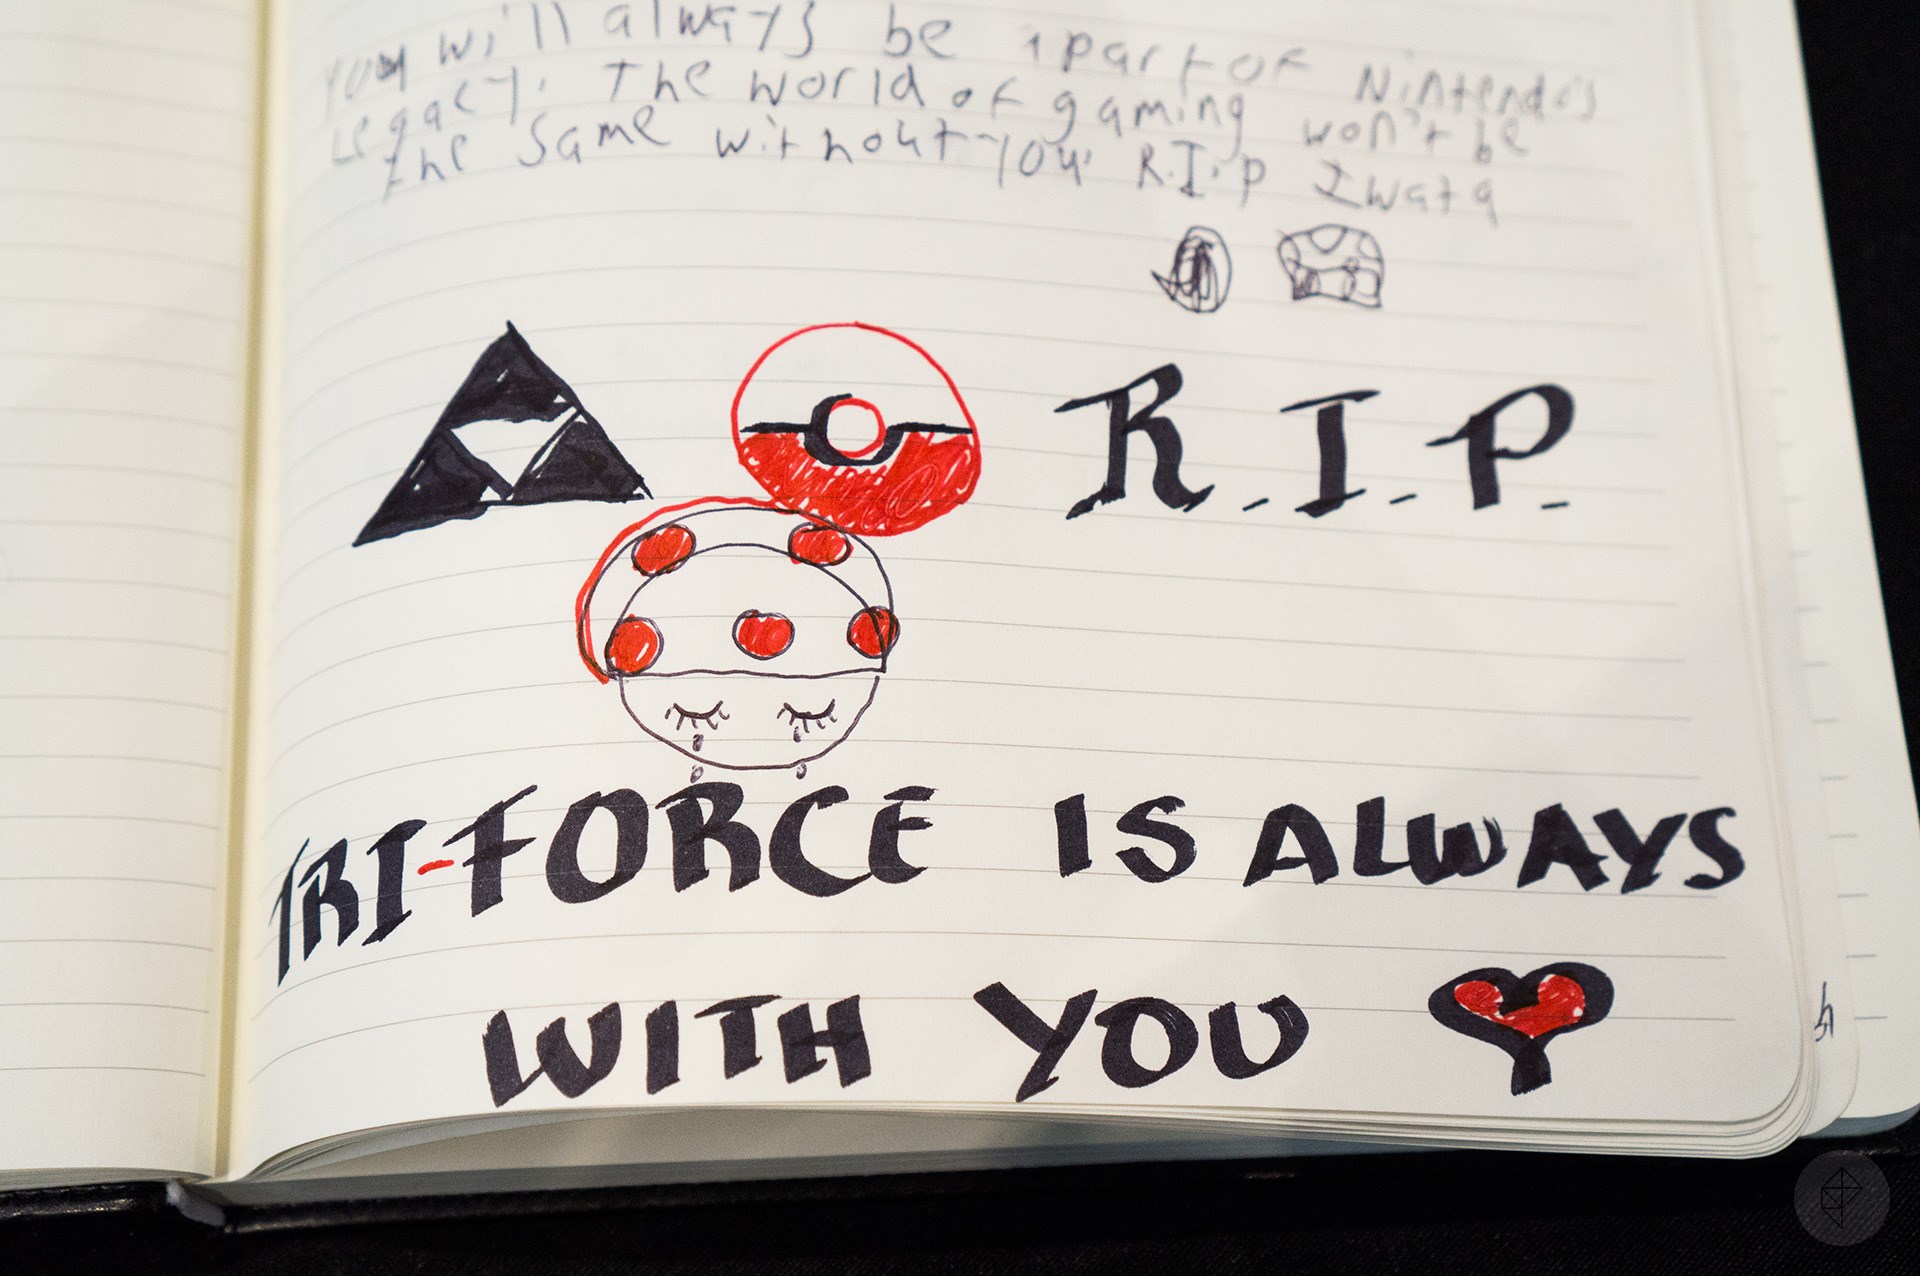 You will always be a part of Nintendo's
Legacy. The world of gaming won't be
the same without you. R.I.P Iwata
R.I.P.
TRI-FORCE IS ALWAYS
WITH YOU